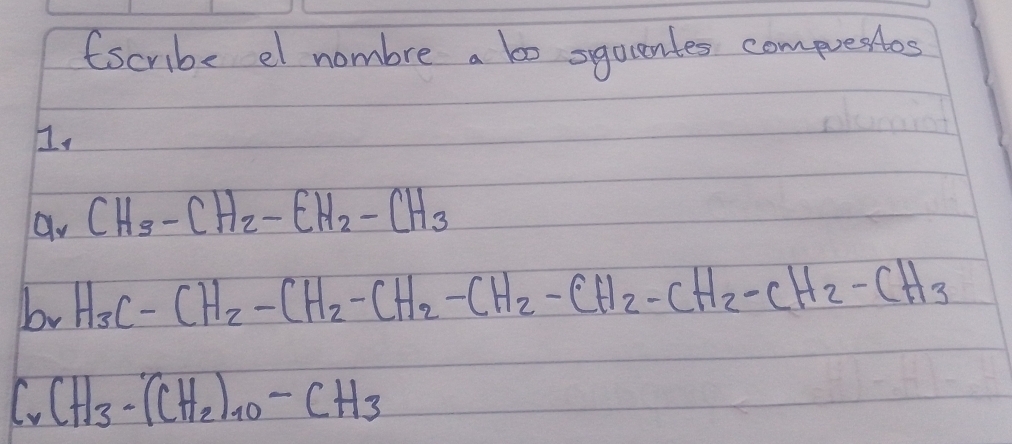 Escribe el nombre a los siguientes compuestos
1.
a. CH3-CH2-CH2-CH3
b. H3C-CH2-CH2-CH2-CH2-CH2-CH2-CH2-CH3
C. CH3-(CH2)10-CH3